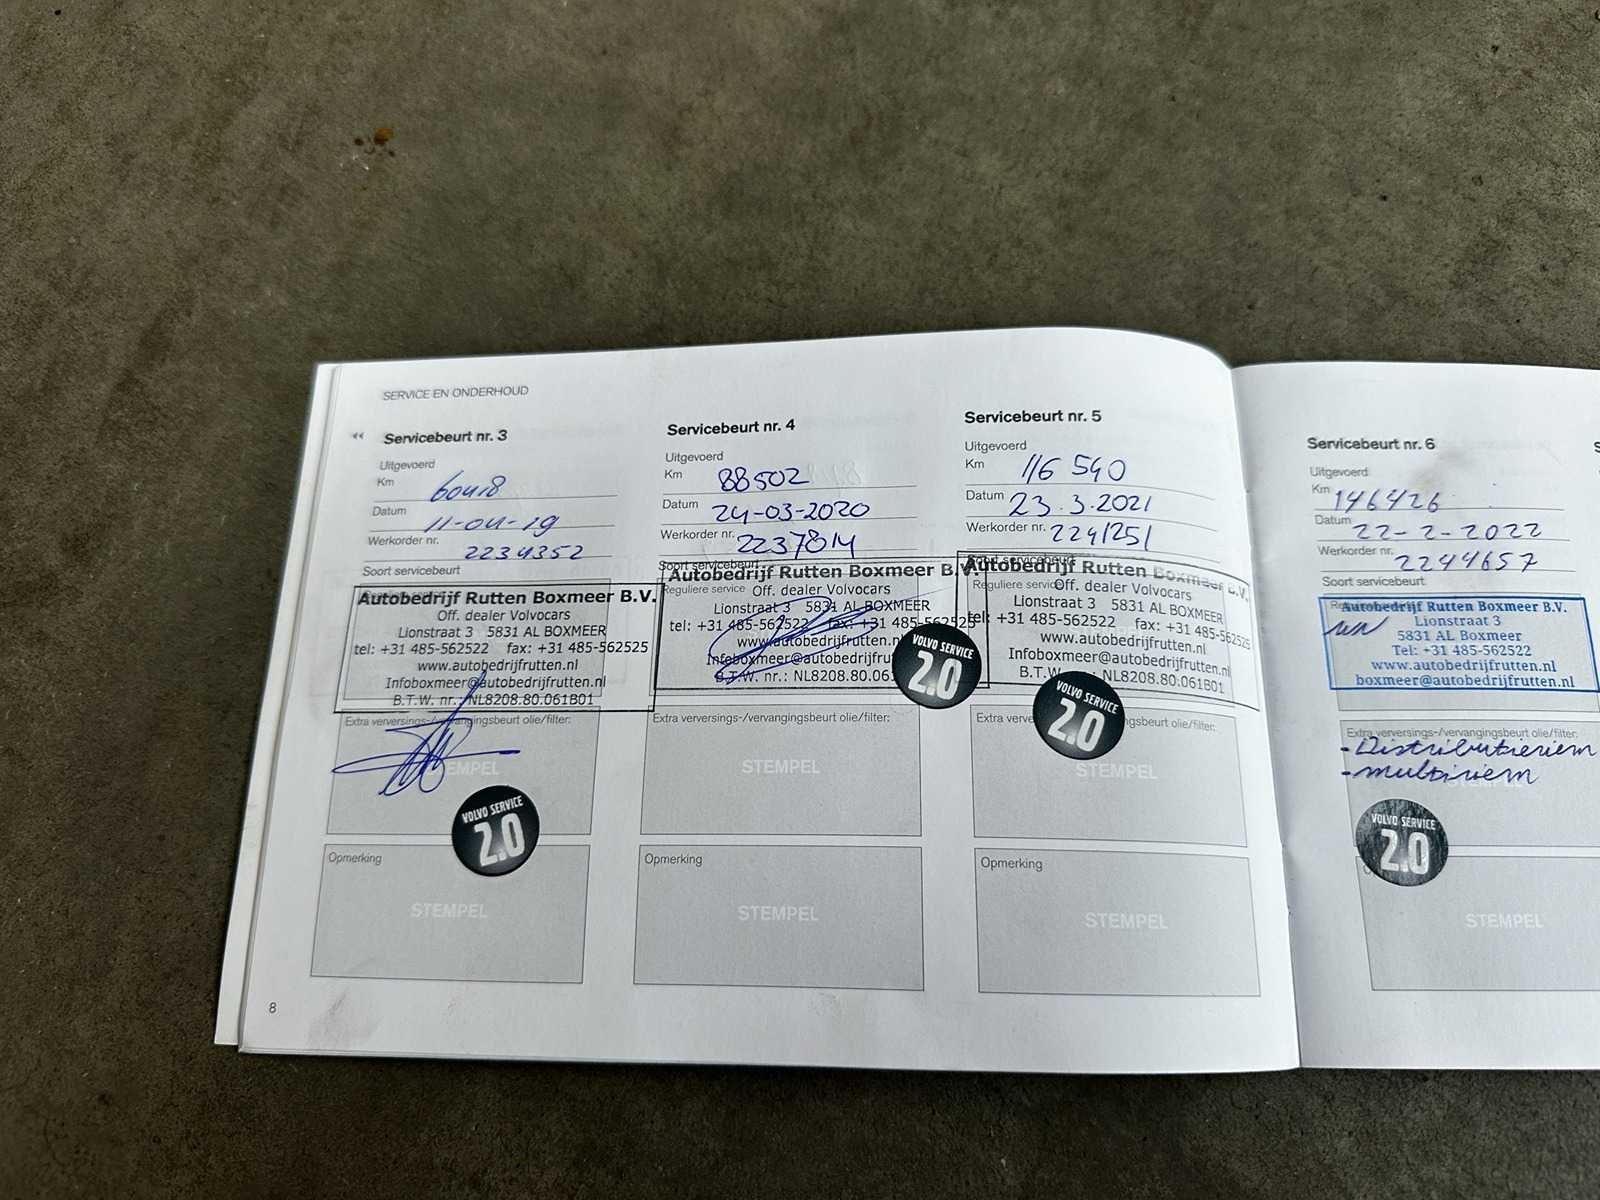 SERVICE EN ONDERHOUD
Servicebeurt nr. 3
Uitgevoerd
Km 60418
Datum 11-04-19
Werkorder nr. 2234352
Soort servicebeurt
Autobedrijf Rutten Boxmeer B.V.
Off. dealer Volvocars
Lionstraat 3 5831 AL BOXMEER
tel: +31 485-562522 fax: +31 485-562525
www.autobedrijfrutten.nl
Infoboxmeer@autobedrijfrutten.nl
B.T.W. nr.: NL8208.80.061B01
Extra verversings-/vervangingsbeurt olie/filter:
STEMPEL
VOLVO SERVICE
2.0
Opmerking
STEMPEL
8
Servicebeurt nr. 4
Uitgevoerd
Km 88502
Datum 24-03-2020
Werkorder nr. 2237814
Soort servicebeurt
Autobedrijf Rutten Boxmeer B.V.
Reguliere service
Off. dealer Volvocars
Lionstraat 3 5831 AL BOXMEER
tel: +31 485-562522 fax: +31 485-562525
www.autobedrijfrutten.nl
Infoboxmeer@autobedrijfru
B.T.W. nr.: NL8208.80.061
VOLVO SERVICE
2.0
Extra verversings-/vervangingsbeurt olie/filter:
STEMPEL
Opmerking
STEMPEL
Servicebeurt nr. 5
Uitgevoerd
Km 116 540
Datum 23.3.2021
Werkorder nr. 2241251
Soort servicebeurt
Autobedrijf Rutten Boxmeer B.V.
Reguliere service
Off. dealer Volvocars
Lionstraat 3 5831 AL BOXMEER
tel: +31 485-562522 fax: +31 485-562525
www.autobedrijfrutten.nl
Infoboxmeer@autobedrijfrutten.nl
B.T.W. nr.: NL8208.80.061B01
VOLVO SERVICE
2.0
Extra verve ngsbeurt olie/filter:
STEMPEL
Opmerking
STEMPEL
Servicebeurt nr. 6
Uitgevoerd
Km 146426
Datum 22-2-2022
Werkorder nr. 2244657
Soort servicebeurt
Autobedrijf Rutten Boxmeer B.V.
Lionstraat 3
5831 AL Boxmeer
Tel: +31 485-562522
www.autobedrijfrutten.nl
boxmeer@autobedrijfrutten.nl
Extra verversings-/vervangingsbeurt olie/filter:
- Distributieriem
- multiriem
VOLVO SERVICE
2.0
STEMPEL